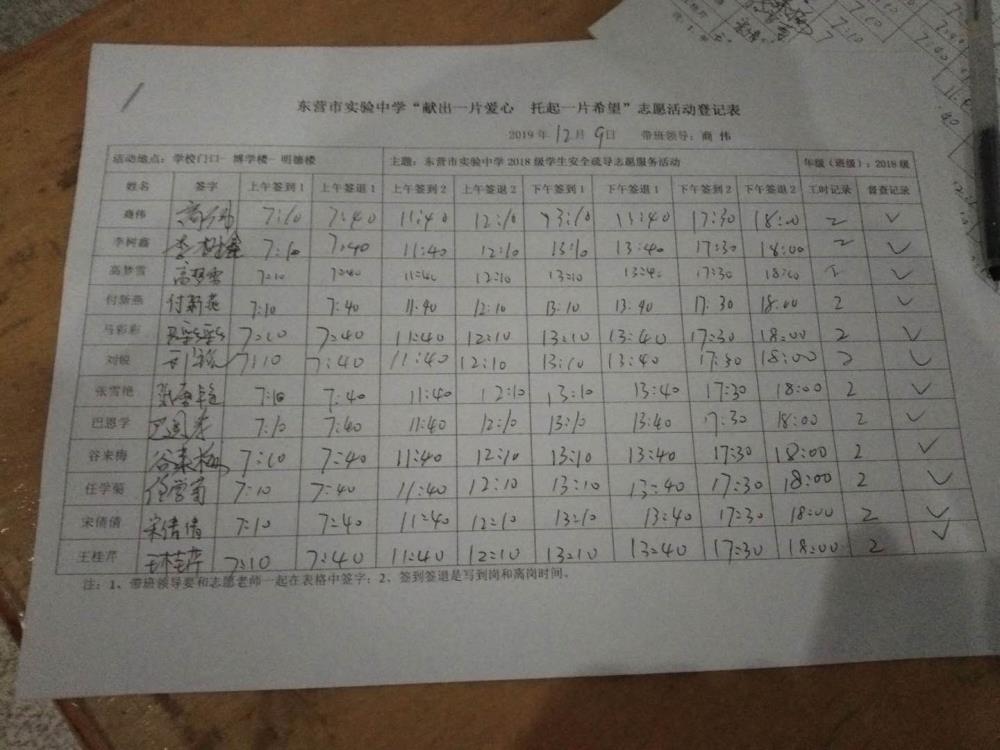 东营市实验中学“献出一片爱心 托起一片希望”志愿活动登记表
2019年12月9日 带班领导：商 伟
活动地点：学校门口- 博学楼- 明德楼 主题：东营市实验中学2018级学生安全疏导志愿服务活动 年级（班级）：2018级
姓名 签字 上午签到1 上午签退1 上午签到2 上午签退2 下午签到1 下午签退1 下午签到2 下午签退2 工时记录 督查记录
商伟 商伟 7:10 7:40 11:40 12:10 13:10 13:40 17:30 18:00 2 ✓
李树鑫 李树鑫 7:10 7:40 11:40 12:10 13:10 13:40 17:30 18:00 2 ✓
高梦雪 高梦雪 7:10 7:40 11:40 12:10 13:10 13:40 17:30 18:00 ✓
付新燕 付新燕 7:10 7:40 11:40 12:10 13:10 13:40 17:30 18:00 2 ✓
马彩彩 马彩彩 7:10 7:40 11:40 12:10 13:10 13:40 17:30 18:00 2 ✓
刘锐 刘锐 7:10 7:40 11:40 12:10 13:10 13:40 17:30 18:00 2 ✓
张雪艳 张雪艳 7:10 7:40 11:40 12:10 13:10 13:40 17:30 18:00 2 ✓
巴恩学 巴恩学 7:10 7:40 11:40 12:10 13:10 13:40 17:30 18:00 2 ✓
谷来梅 谷来梅 7:10 7:40 11:40 12:10 13:10 13:40 17:30 18:00 2 ✓
任学菊 任学菊 7:10 7:40 11:40 12:10 13:10 13:40 17:30 18:00 2 ✓
宋倩倩 宋倩倩 7:10 7:40 11:40 12:10 13:10 13:40 17:30 18:00 2 ✓
王桂芹 王桂芹 7:10 7:40 11:40 12:10 13:10 13:40 17:30 18:00 2 ✓
注：1、带班领导要和志愿老师一起在表格中签字；2、签到签退是写到岗和离岗时间。